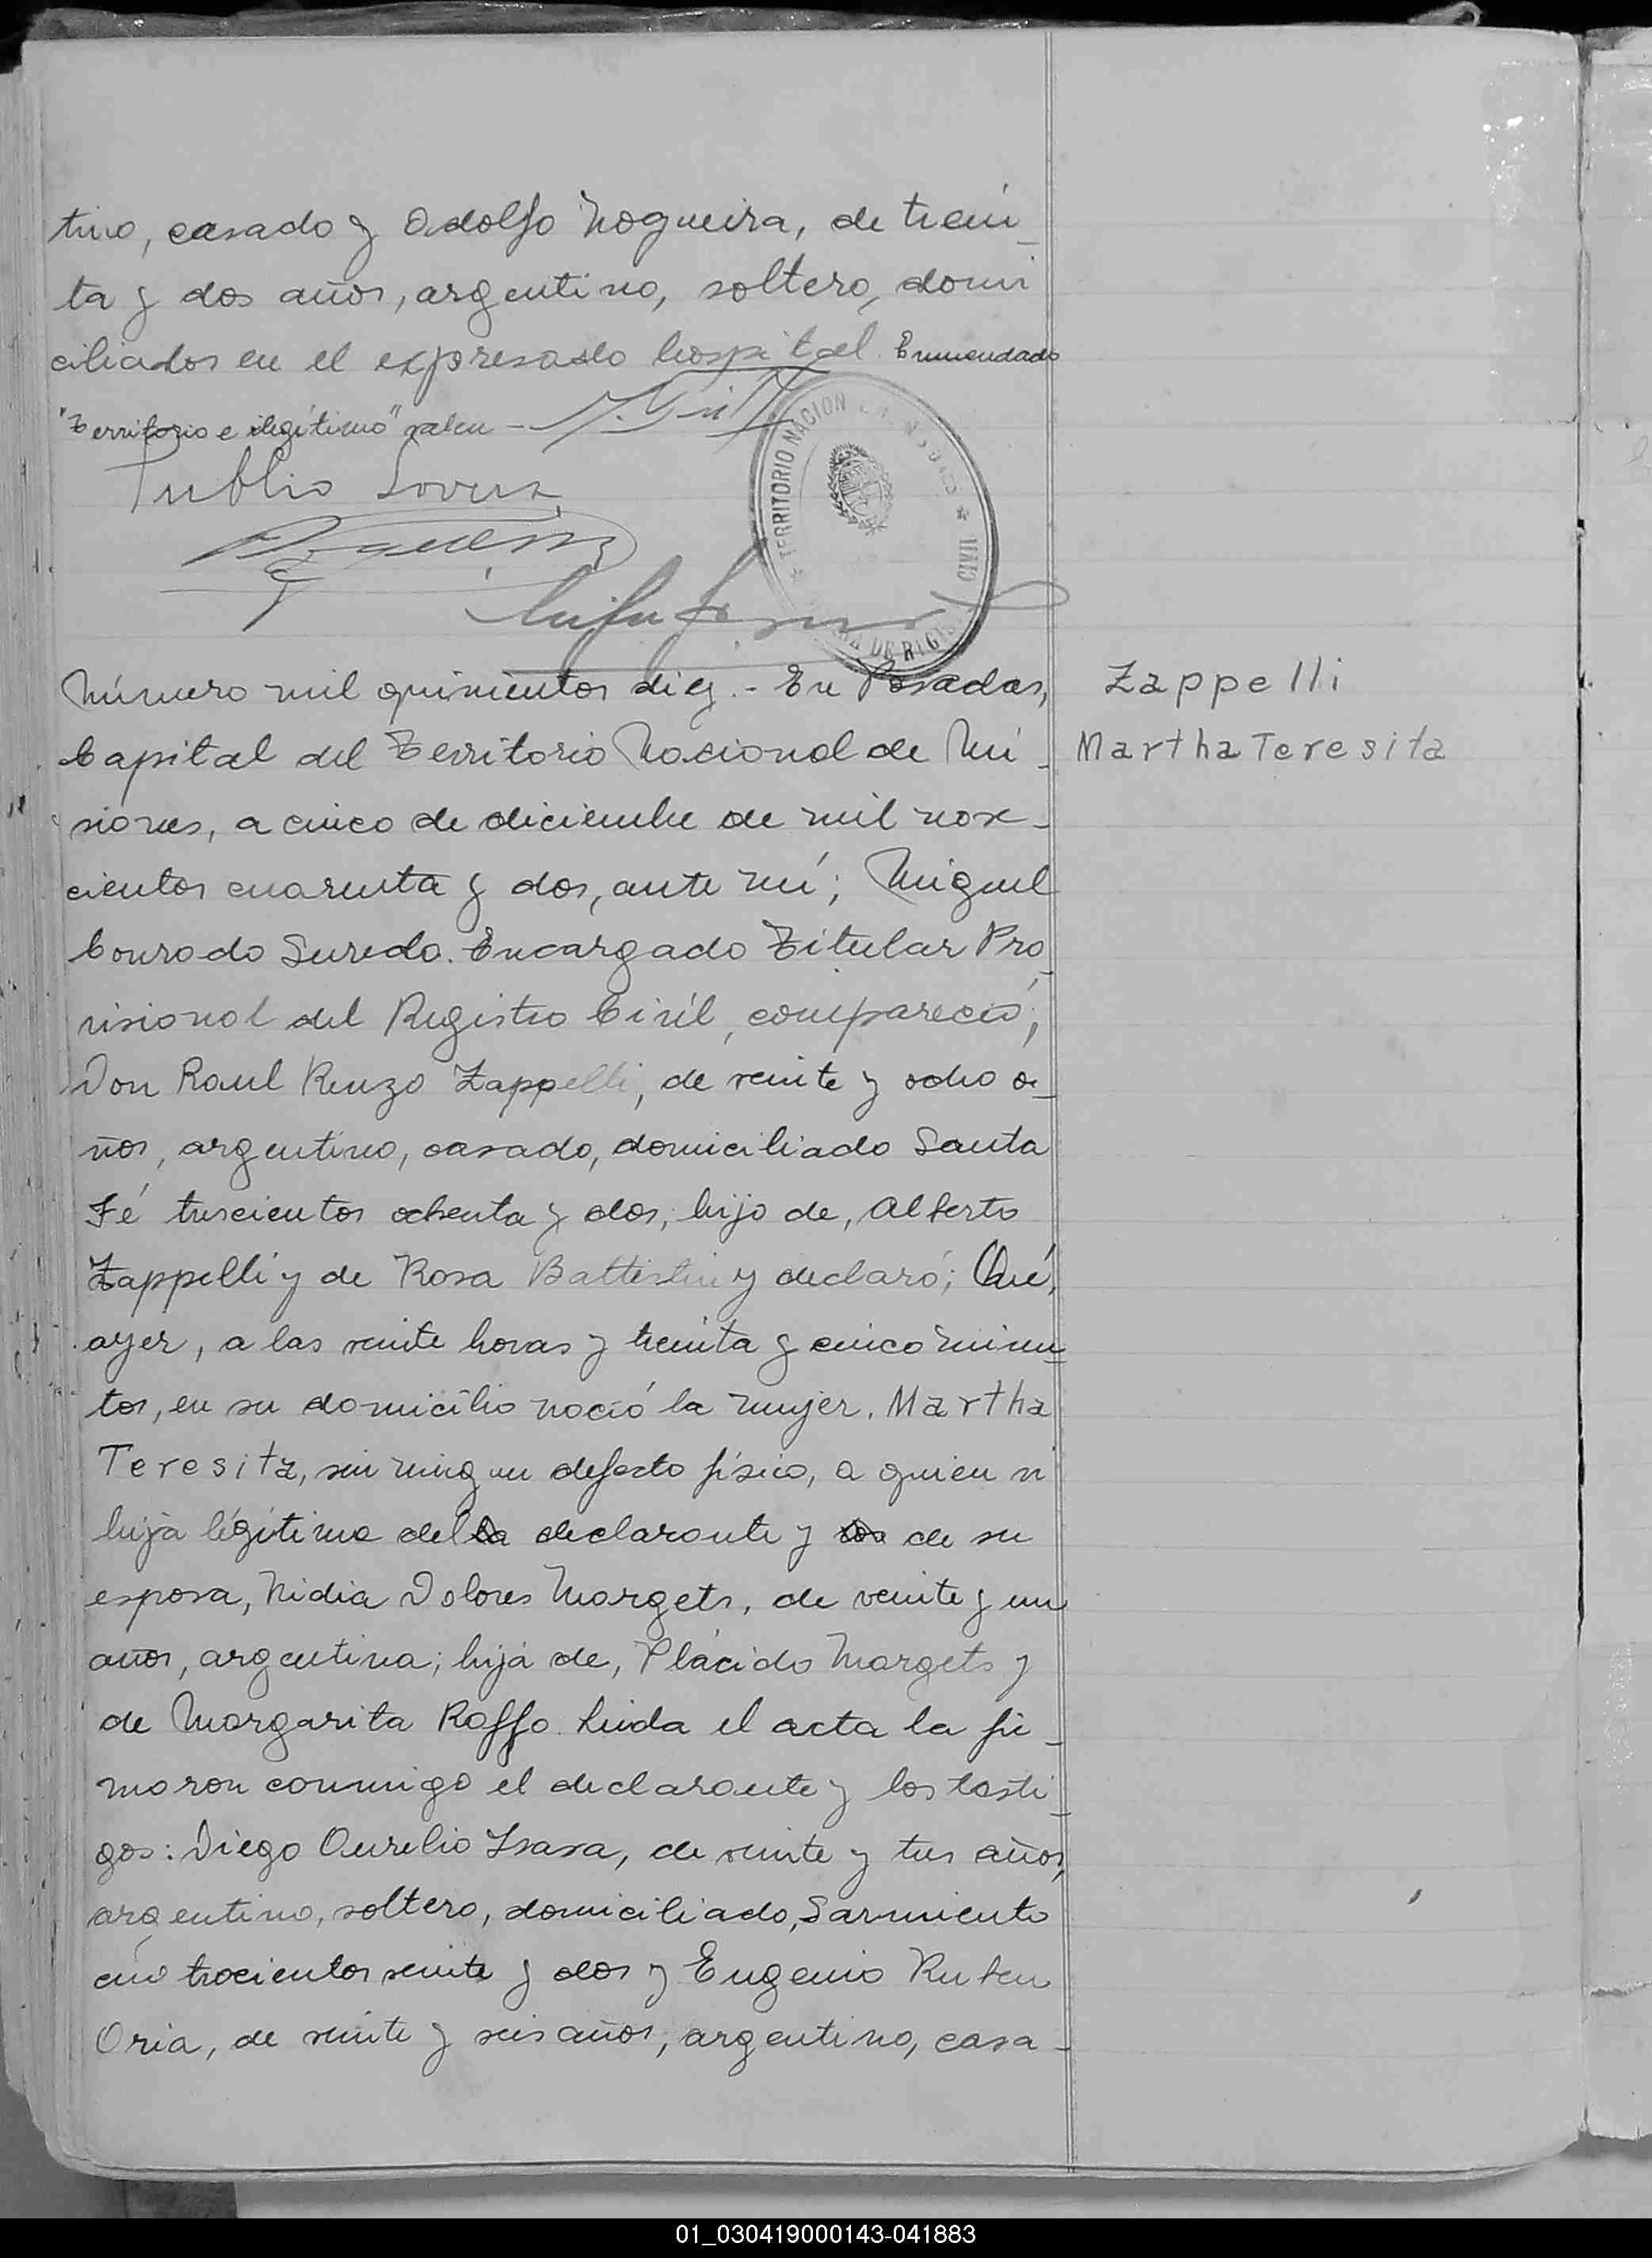 tino, casado y Adolfo Nogueira, de trein_
ta y dos años, argentino, soltero, domi
ciliados en el expresado hospital. Enmendado
"Territorio e ilegítimo" valen -
Publio
TERRITORIO NACION
CIVIL
DE
Número mil quinientos diez.- En Posadas,
Capital del Territorio Nacional de Mi_
siones, a cinco de diciembre de mil nove_
cientos cuarenta y dos, ante mí; Miguel
Conrado Suredo. Encargado Titular Pro_
visional del Registro Civil, compareció;
Don Raul Renzo Zappelli, de veinte y ocho a_
ños, argentino, casado, domiciliado Santa
Fé trescientos ochenta y dos, hijo de, Alberto
Zappelli y de Rosa Battistin y declaró; Qué,
ayer, a las veinte horas y treinta y cinco minu_
tos, en su domicilio nació la mujer. Martha
Teresita, sin ningun defecto físico, a quien vi
hija légitima del declarante y de su
esposa, Nidia Dolores Margets, de veinte y un
años, argentina; hija de, Plácido Margets y
de Margarita Roffo. Leida el acta la fir_
maron conmigo el declarante y los testi_
gos: Diego Aurelio Isasa, de veinte y tres años,
argentino, soltero, domiciliado, Sarmiento
trocientos veinte y dos y Eugenio Ruben
Oria, de veinte y seis años, argentino, casa_
Zappelli
Martha Teresita
01_030419000143-041883